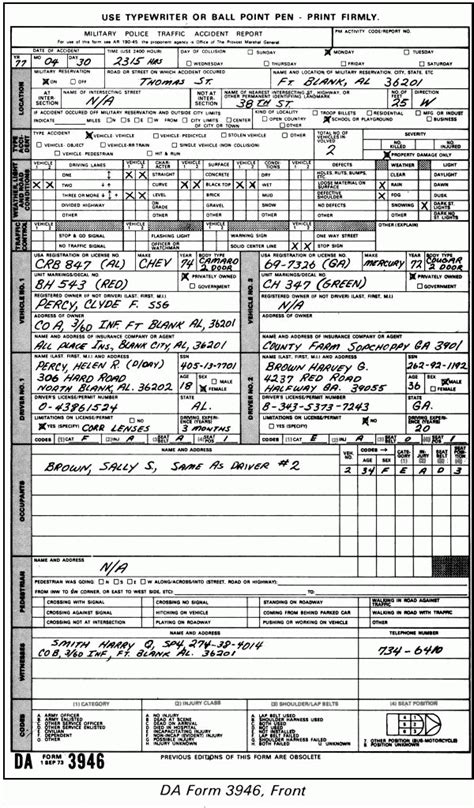 USE TYPEWRITER OR BALL POINT PEN - PRINT FIRMLY.
MILITARY POLICE TRAFFIC ACCIDENT REPORT
For use of this form see AR 190-45 the proponent agency is Office of The Provost Marshal General
PM ACTIVITY CODE/REPORT NO.
YR MO DAY
DATE OF ACCIDENT
TIME (USE 2400 HOUR)
DAY OF COLLISION
SUNDAY MONDAY TUESDAY
77 04 30 2315 HRS
WEDNESDAY THURSDAY FRIDAY SATURDAY
LOCATION
MILITARY RESERVATION
ROAD OR STREET ON WHICH ACCIDENT OCCURRED
NAME AND LOCATION OF MILITARY RESERVATION, CITY, STATE, ETC
ON OFF
THOMAS ST.
FT BLANK AL, 36201
AT INTERSECTION
NAME OF INTERSECTING STREET
N/A
NOT AT INTERSECTION
NAME OF NEAREST INTERSECTING ST, HIGHWAY, OR OTHER PERMANENT IDENTIFYING LANDMARK
38TH ST.
NO. OF FEET
25 W
IF ACCIDENT OCCURRED OFF MILITARY RESERVATION AND OUTSIDE CITY LIMITS
KIND OF LOCALITY
INDICATE MILES N S E W FROM CITY LIMITS CENTER OF CITY OR TOWN
OPEN COUNTRY
TOOL BILLETS
RESIDENTIAL
MFG OR INDUST
SCHOOL OR PLAYGROUND
BUSINESS
TYPE ACCIDENT
VEHICLE VEHICLE
VEHICLE PEDICYCLE
STOLEN VEHICLE
OTHER
VEHICLE- OBJECT
VEHICLE-RR TRAIN
SINGLE VEHICLE (NON COLLISION)
VEHICLE PEDESTRIAN
HIT & RUN
TOTAL NO. OF VEHICLES INVOLVED
2
SEVERITY
NO. KILLED
NO. INJURED
PROPERTY DAMAGE ONLY
VEHICLE DRIVING LANES VEHICLE CHARACTER VEHICLE SURFACE VEHICLE CONDITION DEFECTS WEATHER LIGHT
ONE X X STRAIGHT CONCRETE DRY HOLES, RUTS, BUMPS, ETC. CLEAR DAY
X X TWO CURVE X X BLACK TOP X X WET LOOSE MATERIAL ON SURFACE X RAIN DAWN
THREE OR MORE X X LEVEL BRICK MUD DEFECTIVE SHOULDER X FOG DUSK
DIVIDED HIGHWAY GRADE GRAVEL SNOW NO DEFECTS SNOWING X DARK ST. LIGHTS
OTHER ON OTHER OTHER OTHER OTHER DARK NO ST LIGHTS
TRAFFIC CONTROL
VEHICLE VEHICLE VEHICLE VEHICLE OTHER (EXPLAIN)
STOP & GO SIGNAL FLASHING LIGHT WARNING SIGN ONE WAY STREET
NO TRAFFIC SIGNAL OFFICER OR WATCHMAN SOLID CENTER LINE X X STOP SIGN
VEHICLE NO. 1
USA REGISTRATION OR LICENSE NO MAKE YEAR BODY TYPE
CRB 847 (AL) CHEV 74 CAMARO 2 DOOR
UNIT MARKINGS/DECAL NO
BH 543 (RED)
PRIVATELY OWNED
GOVERNMENT
REGISTERED OWNER (IF NOT DRIVER) (LAST, FIRST, M.I.)
PERCY, CLYDE F. SSG
ADDRESS OF OWNER
CO A, 3/60 INF FT BLANK AL, 36201
NAME AND ADDRESS OF INSURANCE COMPANY OR AGENT
ALL PLACE INS, BLANK CITY, AL, 36201
VEHICLE NO. 2
USA REGISTRATION OR LICENSE NO MAKE YEAR BODY TYPE
69-7326 (GA) MERCURY 77 COUGAR 2 DOOR
UNIT MARKINGS/DECAL NO
CH 347 (GREEN)
PRIVATELY OWNED
GOVERNMENT
REGISTERED OWNER (IF NOT DRIVER) (LAST, FIRST, M.I.)
N/A
ADDRESS OF OWNER
NAME AND ADDRESS OF INSURANCE COMPANY OR AGENT
COUNTY FARM SOPCHOPPY GA 3901
DRIVER NO. 1
NAME (LAST, FIRST, M.I.) AND ADDRESS SSN
PERCY, HELEN R (D/DAY) 405-13-7701
306 HARD ROAD
NORTH BLANK, AL. 36202
AGE SEX
18 MALE FEMALE
DRIVER'S LICENSE/PERMIT NUMBER STATE
0-43861524 AL.
LIMITATIONS ON LICENSE/PERMIT NO
YES (SPECIFY) CORR LENSES
DRIVING EXPERIENCE (YEARS)
3 MONTHS
CODES (1) CAT F INJ A (3) BELT A (4) SEAT POS 1
DRIVER NO. 2
NAME (LAST, FIRST, M.I.) AND ADDRESS SSN
BROWN HARVEY G. 262-92-1192
4237 RED ROAD
HALFWAY GA. 39055
AGE SEX
36 MALE FEMALE
DRIVER'S LICENSE/PERMIT NUMBER STATE
B-343-5373-7243 GA.
LIMITATIONS ON LICENSE/PERMIT NO
YES (SPECIFY)
DRIVING EXPERIENCE (YEARS)
20
OCCUPANTS
NAME AND ADDRESS VEH. NO. CODES AGE SEX CATEGORY (1) INJURY (2) SEAT BELT (3) SEAT POSITION (4)
BROWN, SALLY S, SAME AS DRIVER #2 2 34 F E A D 3
PEDESTRIAN
NAME AND ADDRESS
N/A
PEDESTRIAN WAS GOING N S E W ALONG/ACROSS/INTO (STREET, ROAD OR HIGHWAY):
FROM (NW TO SW CORNER, OR EAST TO WEST SIDE, ETC):
CROSSING WITH SIGNAL CROSSING NO SIGNAL STANDING ON ROADWAY WALKING IN ROAD AGAINST TRAFFIC
CROSSING AGAINST SIGNAL HITCHING ON VEHICLE COMING FROM BEHIND PARKED CAR WALKING IN ROAD WITH TRAFFIC
CROSSING NOT AT INTERSECTION PLAYING ON ROADWAY PUSHING OR WORKING ON VEHICLE OTHER
WITNESSES
NAME AND ADDRESS TELEPHONE NUMBER
SMITH HARRY Q, SP4, 274-38-4014
CO B, 3/60 INF, FT. BLANK AL. 36201 734-6410
CODES
(1) CATEGORY (2) INJURY CLASS (3) SHOULDER/LAP BELTS (4) SEAT POSITION
A ARMY OFFICER
B ARMY ENLISTED
C OTHER SERVICE OFFICER
D OTHER SERVICE ENLISTED
E CIVILIAN
F DEPENDENT
G OTHER
A NO INJURY
B DEAD AT SCENE
C DEAD ON ARRIVAL
D DIED IN HOSPITAL
E INCAPACITATING INJURY
F NON-INCAPACITATING (EVIDENT)
G POSSIBLE INJURY
H INJURY UNKNOWN
A LAP BELT USED
B SHOULDER HARNESS USED
C BOTH USED
D NOT USED
E NOT INSTALLED
F LAP BELT UNKNOWN
7 OTHER POSITION (BUS-MOTORCYCLE)
DA FORM 1 SEP 73 3946
PREVIOUS EDITIONS OF THIS FORM ARE OBSOLETE
DA Form 3946, Front